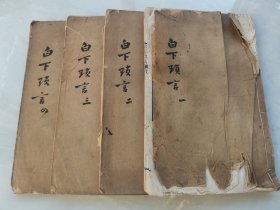 白下瑣言 一
白下瑣言 二
白下瑣言 三
白下瑣言 四